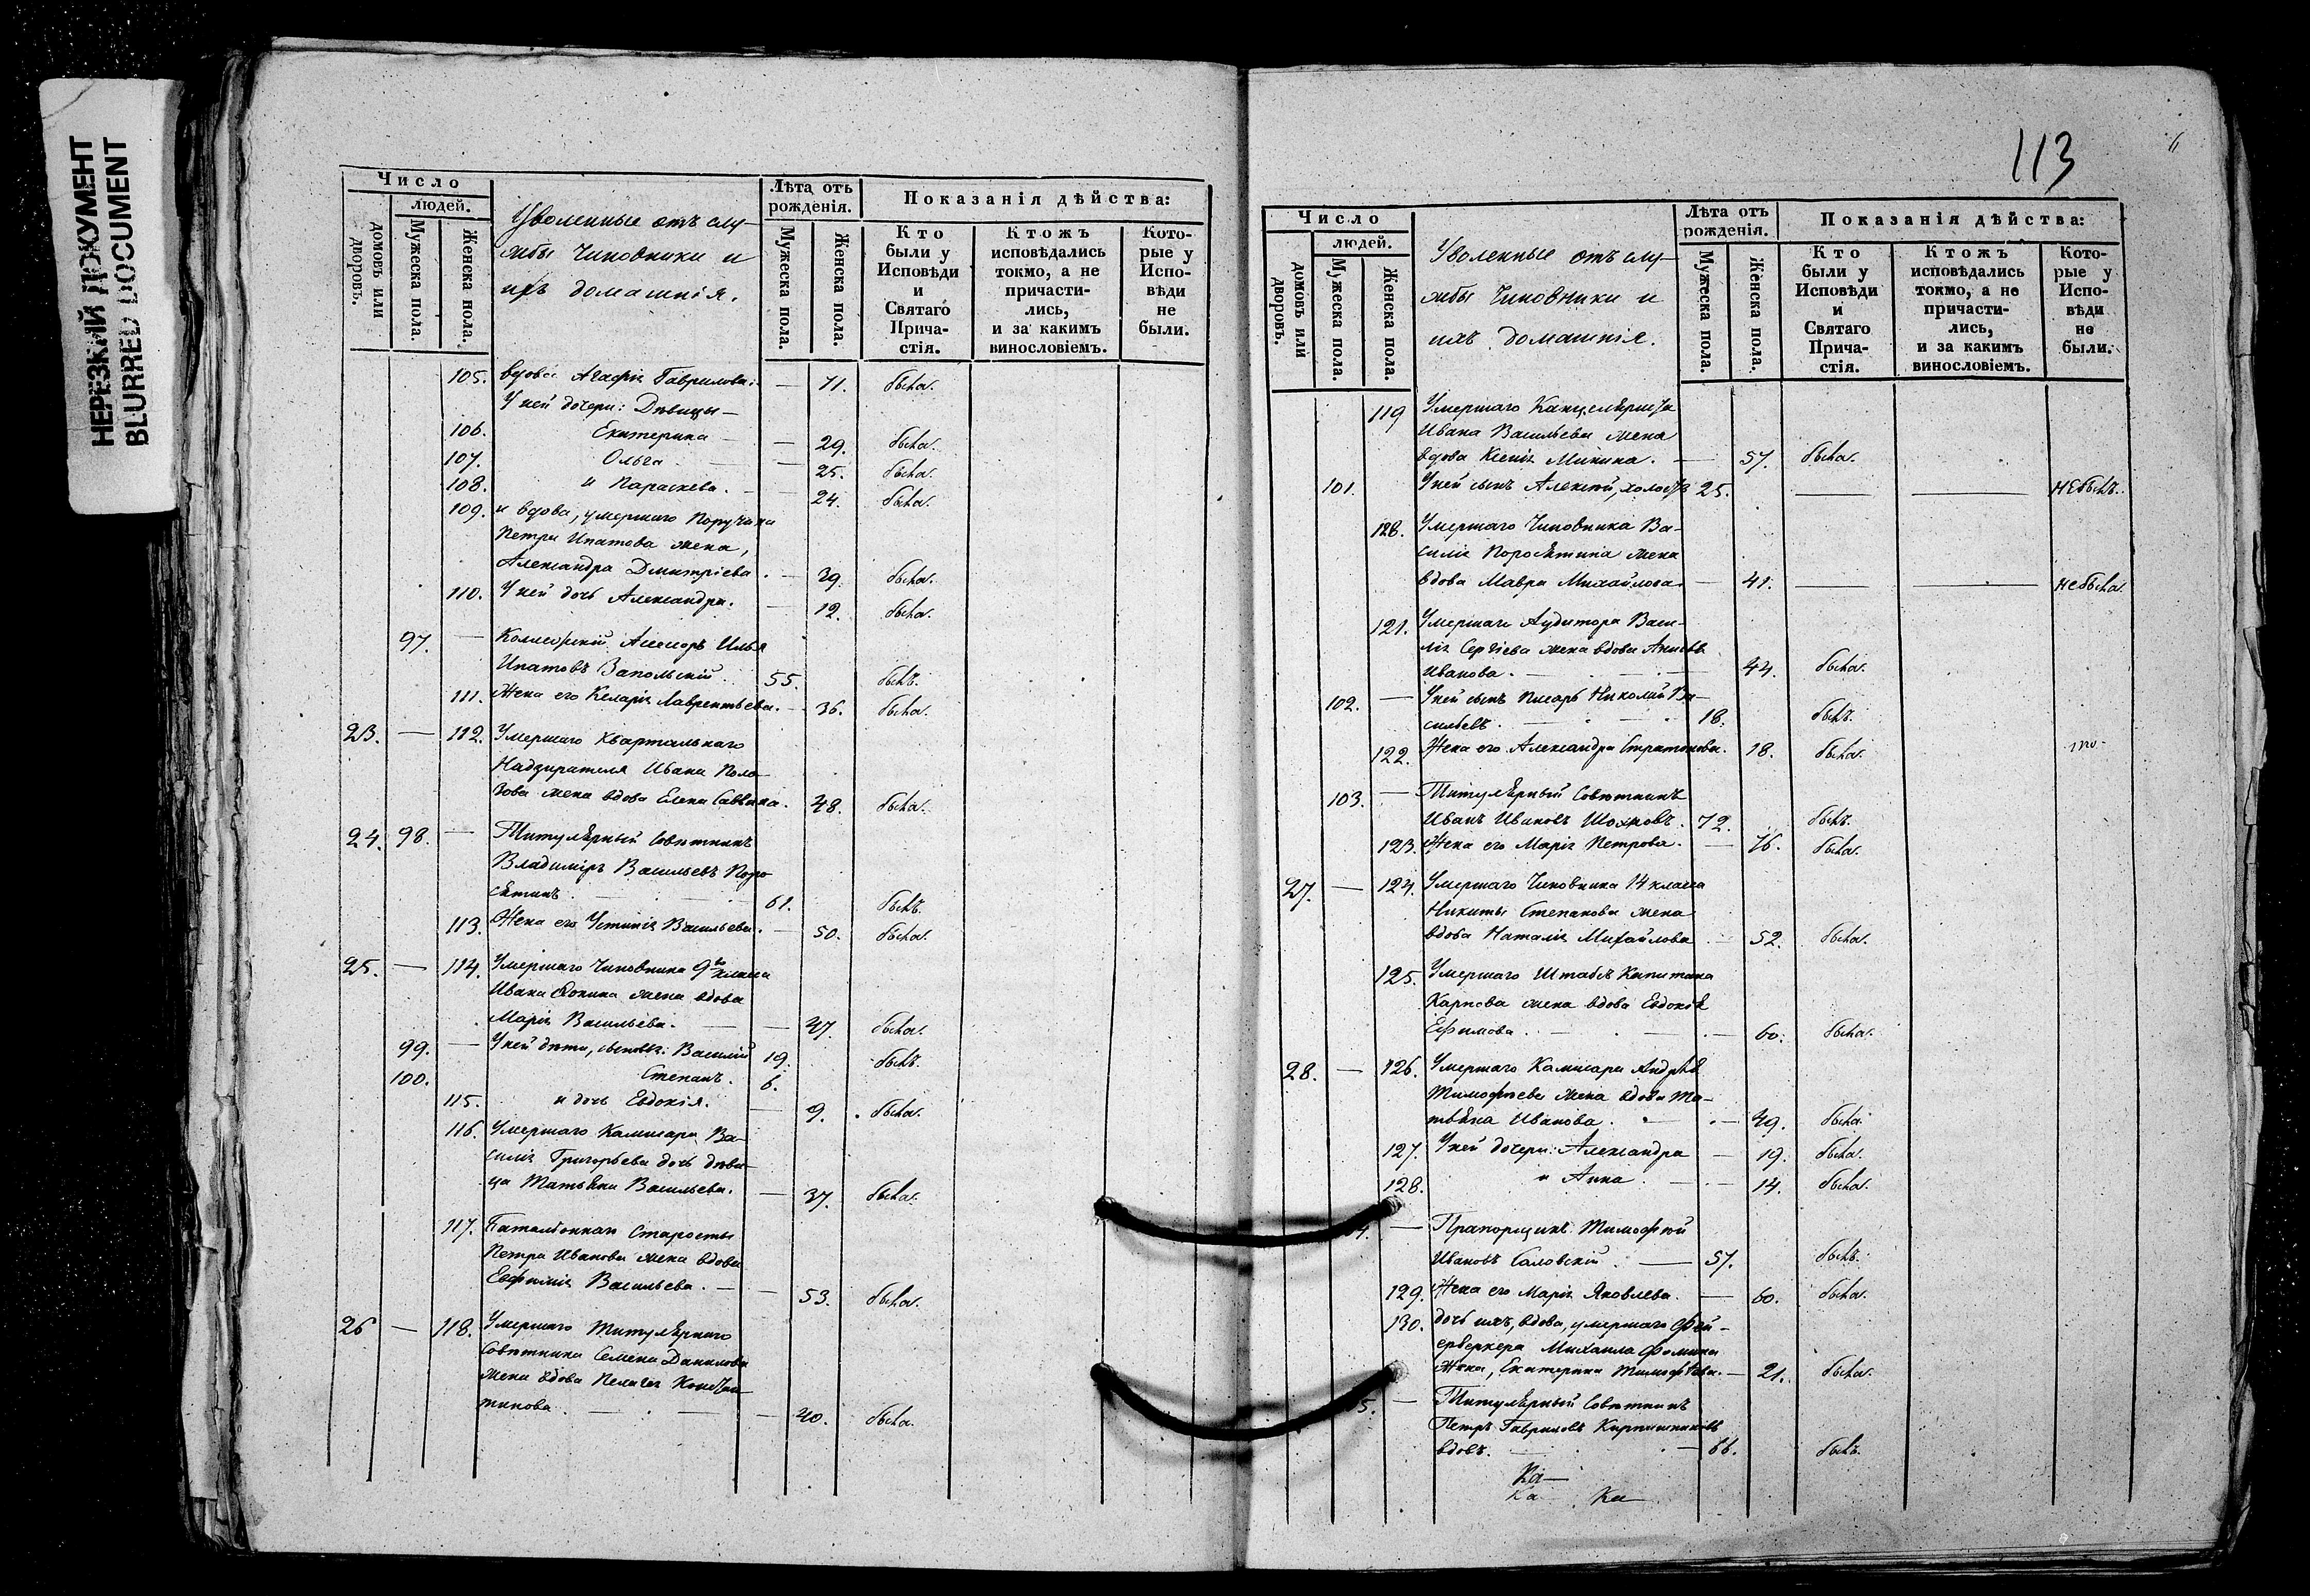 НЕРЕЗКИЙ ДОКУМЕНТ
BLURRED DOCUMENT
Число
людей.
домовъ или дворовъ.
Мужеска пола.
Женска пола.
Уволенные отъ слу-
жбы Чиновники и
ихъ домашнія.
Лѣта отъ
рожденія.
Мужеска пола.
Женска пола.
Показанія дѣйства:
Кто
были у
Исповѣди
и
Святаго
Прича-
стія.
Ктожъ
исповѣдались
токмо, а не
причасти-
лись,
и за какимъ
винословіемъ.
Кото-
рые у
Испо-
вѣди
не
были.
105. вдова Агафія Гаврилова. — 71. была.
У ней дочери: Дѣвицы —
106. Екатерина — 29. была.
107. Ольга — 25. была.
108. и Параскева. — 24. была.
109. и вдова, умершаго Поручика
Петра Ипатова жена,
Александра Дмитріева. — 39. была.
110. У ней дочь Александра. — 12. была.
97. — Коллежскій Ассесоръ Илья
Ипатовъ Запольскій. 55. былъ.
111. Жена его Келарія Лаврентьева. — 36. была.
23. — 112. Умершаго Квартальнаго
Надзирателя Ивана Поло-
зова жена вдова Елена Саввина. 48. была.
24. 98. — Титулярный Совѣтникъ
Владиміръ Васильевъ Поро-
сятинъ. 61. былъ.
113. Жена его Устинія Васильева. — 50. была.
25. — 114. Умершаго Чиновника 9го класса
Ивана жена вдова
Марія Васильева. — 47. была.
99. — У ней дѣти, сыновья: Василій 19. былъ.
100. Степанъ. 6.
115. и дочь Евдокія. — 9. была.
116. Умершаго Камисара Ва-
силія Григорьева дочь дѣви-
ца Татьяна Васильева. — 37. была.
117. Баталіоннаго Старосты
Петра Иванова жена вдова
Евфимія Васильева. — 53. была.
26 — 118. Умершаго Титулярнаго
Совѣтника Семена Данилова
жена вдова Пелагея Констан-
тинова. — 40. была.
113
Число
людей.
домовъ или дворовъ.
Мужеска пола.
Женска пола.
Уволенные отъ слу-
жбы Чиновники и
ихъ домашнія.
Лѣта отъ
рожденія.
Мужеска пола.
Женска пола.
Показанія дѣйства:
Кто
были у
Исповѣди
и
Святаго
Прича-
стія.
Ктожъ
исповѣдались
токмо, а не
причасти-
лись,
и за какимъ
винословіемъ.
Кото-
рые у
Испо-
вѣди
не
были.
119 Умершаго Канцеляриста
Ивана Васильева жена
вдова Ксенія Минина. — 57. была.
101. У ней сынъ Алексѣй, холостъ 25. — — не былъ.
120. Умершаго Чиновника Ва-
силія Поросятина жена
вдова Мавра Михайлова — 41. — — не была.
121. Умершаго Аудитора Васи-
лія Сергіева жена вдова
Иванова. — 44. была.
102. — У ней сынъ Писарь Николай Ва-
сильевъ. — 18. былъ.
122. Жена его Александра Стратонова. 18. была.
103. — Титулярный Совѣтникъ
Иванъ Ивановъ Шохровъ. 72. былъ.
123. Жена его Марія Петрова. — 76. была.
27. — 124. Умершаго Чиновника 14 класса
Никиты Степанова жена
вдова Наталія Михайлова — 52. была.
125. Умершаго Штабсъ Капитана
Карпова жена вдова Евдокія
Ефимова. — 60. была.
28. — 126. Умершаго Камисара Андрея
Тимофѣева жена вдова Та-
тьяна Иванова. — 49. была.
127. У ней дочери: Александра — 19. была.
128. и Анна. — 14. была.
4. — Прапорщикъ Тимофѣй
Ивановъ Саловскій. — 57. былъ.
129. Жена его Марія Яковлева. — 60. была.
130. дочь ихъ, вдова, умершаго Фей-
ерверкера Михаила Фомина
жена, Екатерина Тимофѣева. — 21. была.
5. — Титулярный Совѣтникъ
Петръ Гавриловъ Кирпишниковъ
вдовъ. — 66. былъ.
Ка—
Ка— Ка—